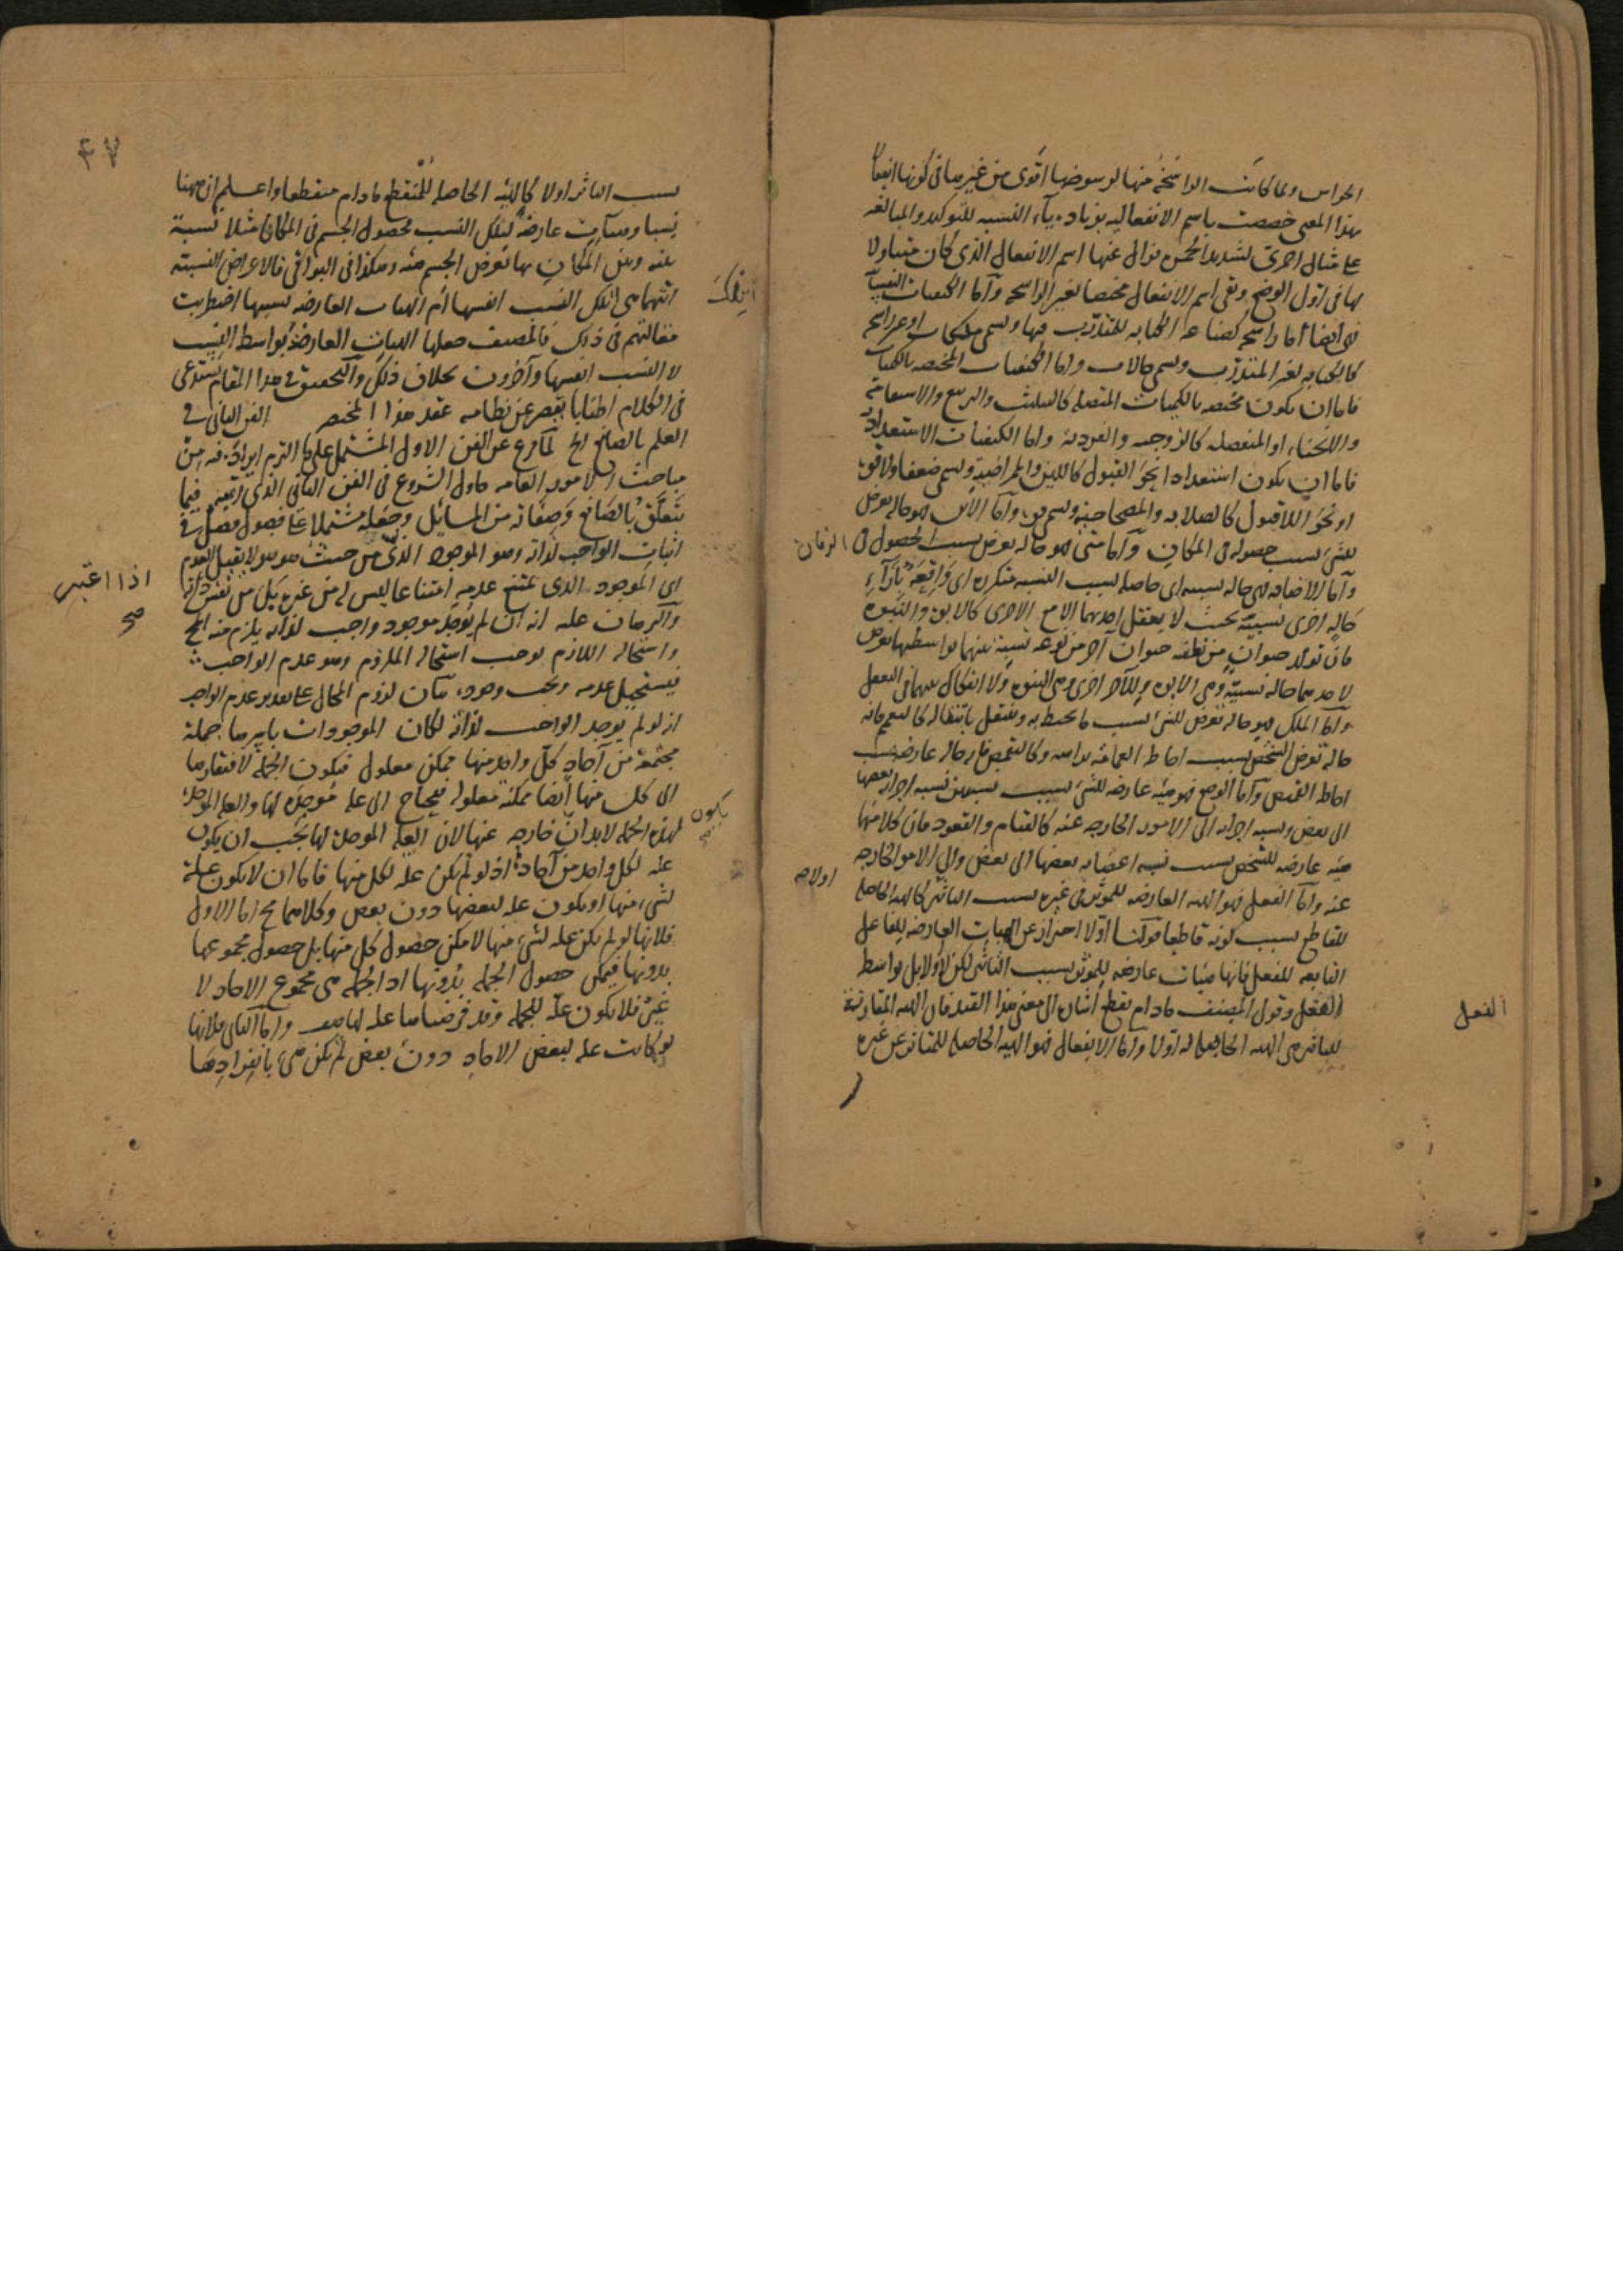 الحواس ولما كانت الراسخة منها لرسوخها اقوى من غيرها في كونها انفعالا
بهذا المعنى خصصت باسم الانفعاليه بزيادة ياء النسبه للتوكيد والمبالغه
على مثال احمرى لشديد الحمرة وزال عنها اسم الانفعال الذى كان متناولا
بها فى اول الوضع وبقى اسم الانفعال مختصا بغير الراسخه وأما الكيفيات النفسانية
فهى ايضا أما راسخه كصناعه الكتابه للمتدرب فيها وتسمى ملكات او غير راسخه
كالكتابه لغير المتدرب وتسمى حالات واما الكيفيات المختصه بالكميات
فاما ان يكون مختصه بالكميات المتصله كالتثليث والتربيع والاستقامة
والانحناء او المنفصله كالزوجيه والفردية واما الكيفيات الاستعداديه
فاما ان يكون استعدادا نحو القبول كاللين والممراضية وتسمى ضعفا ولا قوة
او نحو اللا قبول كالصلابه والمصحاحية وتسمى قوة وأما الأين فهو حالة تعرض
للشئ بسبب حصوله فى المكان وأما متى فهو حاله تعرض بسبب الحصول فى الزمان
وأما الاضافه فهى حاله نسبيه اى حاصله بسبب النسبه متكرره اى واقعة بازاء
حاله اخرى نسبية بحيث لا يعقل احديهما الا مع الاخرى كالابوة والبنوة
فان تولد حيوان من نطفه حيوان آخر من نوعه نسبة بينهما بواسطتها تعرض
لاحدهما حاله نسبية وهى الابوه وللآخر اخرى وهى البنوه ولا انفكاك بينهما فى التعقل
واما الملك فهو حاله تعرض للشئ بسبب ما يحيط به وينتقل بانتقاله كالتعمم فانه
حالة تعرض الشخص بسبب احاطه العمامة برأسه وكالتقمص فانه حاله عارضه بسبب
احاطه القميص وأما الوضع فهو هيئه عارضه للشئ بسبب نسبتين نسبه اجزائه بعضها
الى بعض ونسبه اجزائه الى الامور الخارجه عنه كالقيام والقعود فان كلا منهما
هيئه عارضه للشخص بسبب نسبه اعضائه بعضها الى بعض والى الامور الخارجه
عنه وأما الفعل فهو الهيئه العارضه للمؤثر فى غيره بسبب التاثير كالهيئه الحاصله
اولا صح
للقاطع بسبب كونه قاطعا فقولنا اولا احتراز عن الهيات العارضه للفاعل
التابعه للفعل فانها هيئات عارضه للمؤثر بسبب التاثير لكن لا اولا بل بواسطه
الفعل وقول المصنف مادام يقطع اشاره الى معنى هذا القيد فان الهيئه المقارنة
الفعل
للتاثير هى الهيئه الحاصله له اولا وأما الانفعال فهو الهيئه الحاصله للمتاثر عن غيره
۴۷
بسبب التاثر اولا كالهيئه الحاصله للمتقطع مادام متقطعا واعلم ان ههنا
نسبا وهيآت عارضة لتلك النسب فحصول الجسم فى المكان مثلا نسبة
بينه وبين المكان بها تعرض الجسم هيئه وهكذا فى البواقى فالاعراض النسبية
ايتهما هى اتلك النسب انفسها أم الهيات العارضه بسببها اضطربت
اتلك
مقالتهم فى ذلك فالمصنف جعلها الهيات العارضة بواسطه النسب
لا النسب انفسها وآخرون بخلاف ذلك والتحقيق فى هذا المقام يستدعى
فى الكلام اطنابا يقصر عن نظامه عقد هذا المختصر الفن الثانى فى
العلم بالصانع الخ لما فرغ عن الفن الاول المشتمل على ما التزم ايراده فيه من
مباحث الامور العامه حاول الشروع فى الفن الثانى الذى رتبه فيما
يتعلق بالصانع وصفاته من المسائل وجعله مشتملا على فصول فصل فى
اثبات الواجب لذاته وهو الموجود الذى من حيث هو هو لا يقبل العدم
اى الموجود الذى يمتنع عدمه امتناعا ليس له من غيره بل من نفس ذاته
اذا اعتبر صح
والبرهان عليه انه ان لم يوجد موجود واجب لذاته يلزم منه المح
واستحاله اللازم توجب استحاله الملزوم وهو عدم الواجب
فيستحيل عدمه ويجب وجوده بيان لزوم المحال على تقدير عدم الواجب
انه لو لم يوجد الواجب لذاته لكان الموجودات باسرها جملة
مجتمعة من آحاد كل واحد منها ممكن معلول فيكون الجملة لافتقارها
الى كل منها ايضا ممكنة معلوله فيحتاج الى علة موجدة لها والعلة الموجدة
لهذه الجمله لابد ان خارجه عنها لان العله الموجدة لها يجب ان يكون
يكون صح
عله لكل واحد من آحاده اذ لو لم يكن عله لكل منها فاما ان لا يكون علة
لشئ منها او يكون عله لبعضها دون بعض وكلاهما مح اما الاول
فلانها لو لم يكن عله لشئ منها لامكن حصول كل منها بل حصول مجموعها
بدونها فيمكن حصول الجمله بدونها اذ الجمله هى مجموع الاحاد لا
غير فلا يكون علة للجمله وقد فرضناها عله لها هف واما الثانى فلانها
لو كانت عله لبعض الاحاد دون بعض لم يكن هى بانفرادها